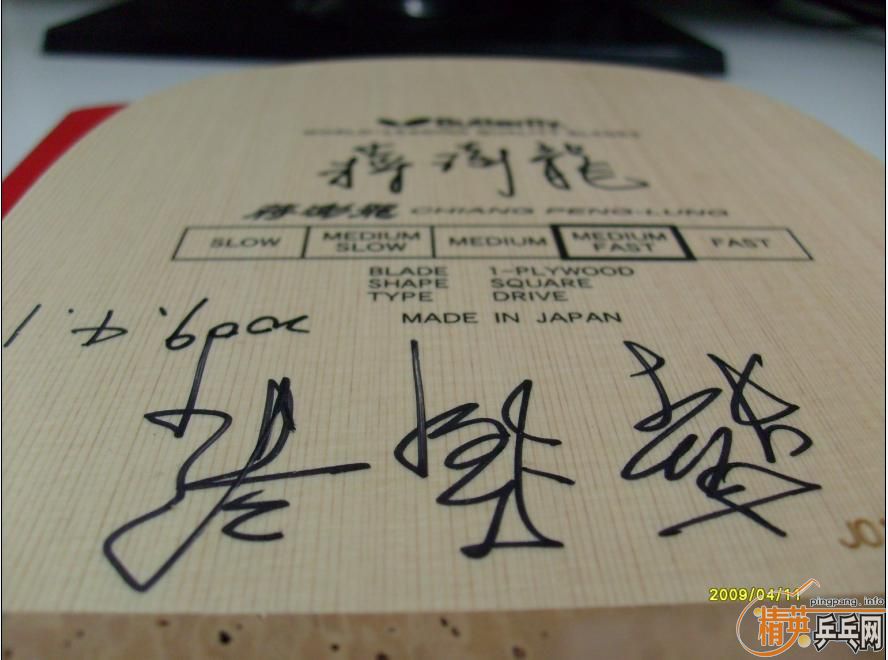 Butterfly
WORLD-LEADING QUALITY BLADES
蒋澎龍
蒋澎龍 CHIANG PENG-LUNG
SLOW MEDIUM SLOW MEDIUM MEDIUM FAST FAST
BLADE 1-PLYWOOD
SHAPE SQUARE
TYPE DRIVE
MADE IN JAPAN
2009.4.1
2009/04/11
pingpang.info
精英乒乓网